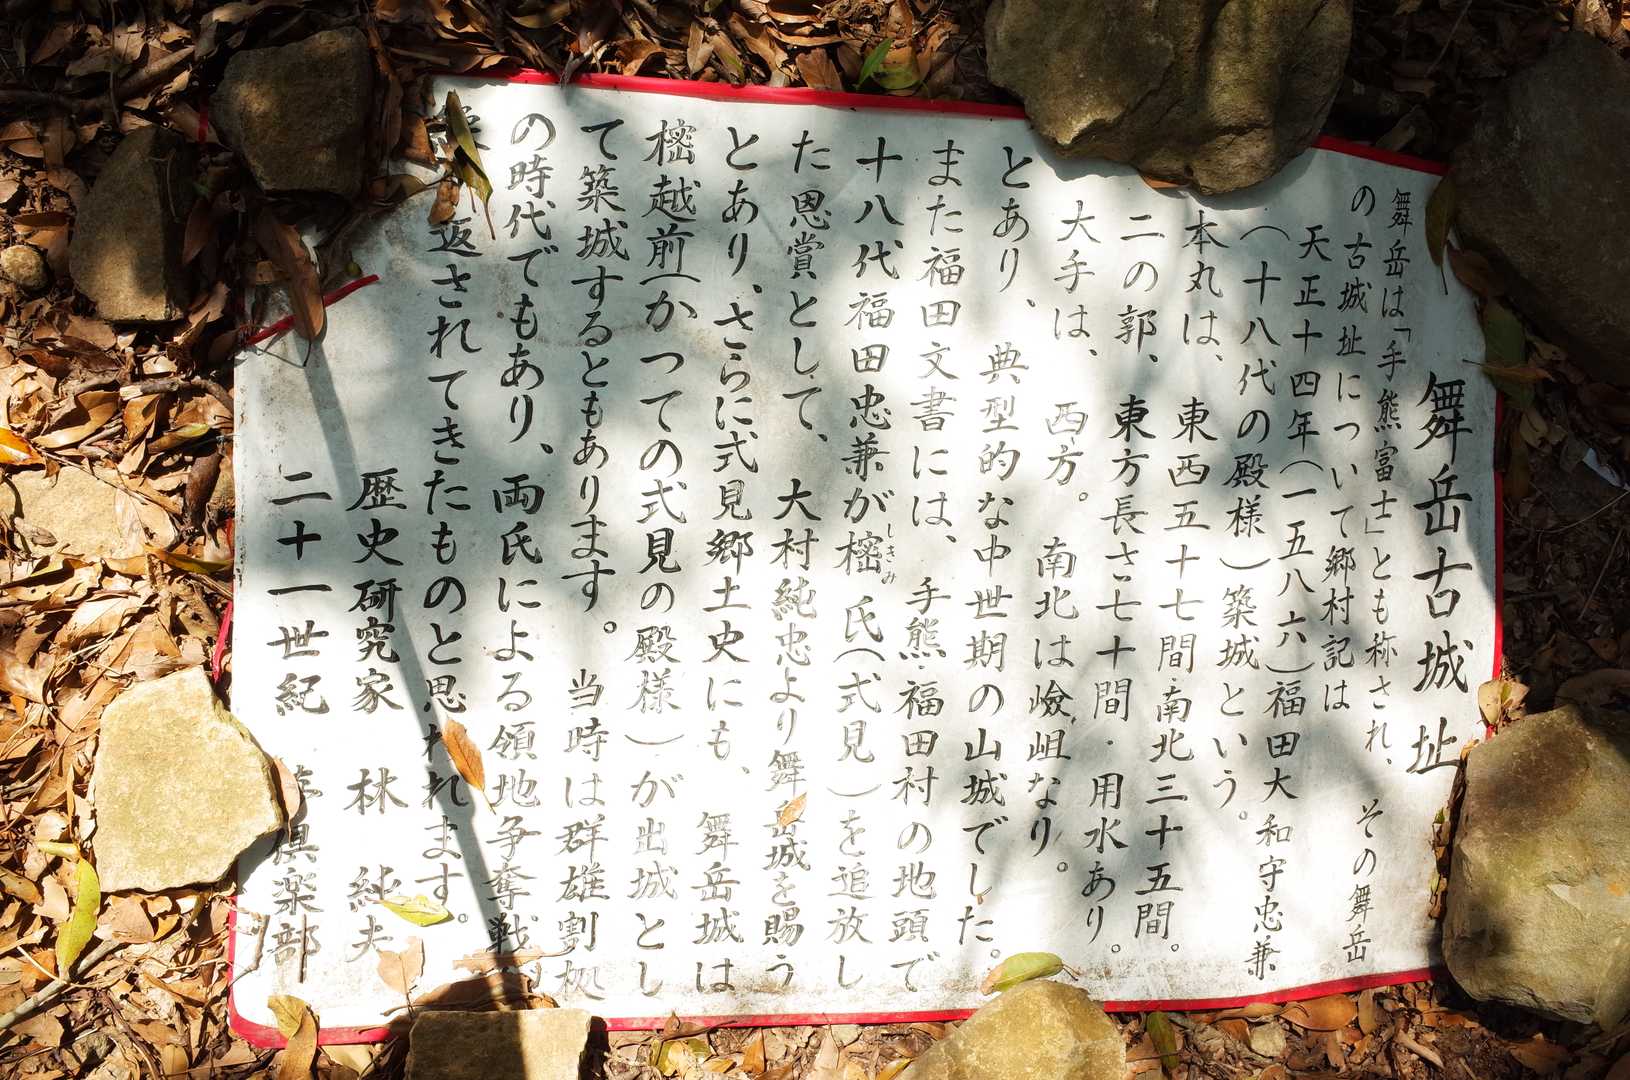 舞岳古城址
舞岳は「手熊富士」とも称され、その舞岳
の古城址について郷村記は
天正十四年（一五八六）福田大和守忠兼
（十八代の殿様）築城という。
本丸は、東西五十七間・南北三十五間。
二の郭、東方長さ七十間・用水あり。
大手は、西方。南北は嶮岨なり。
とあり、典型的な中世期の山城でした。
また福田文書には、手熊・福田村の地頭で
十八代福田忠兼が樒しきみ氏（式見）を追放し
た恩賞として、大村純忠より舞岳城を賜う
とあり、さらに式見郷土史にも、舞岳城は
樒越前（かつての式見の殿様）が出城とし
て築城するともあります。当時は群雄割拠
の時代でもあり、両氏による領地争奪戦
返されてきたものと思われます。
歴史研究家 林 純夫
二十一世紀 倶楽部